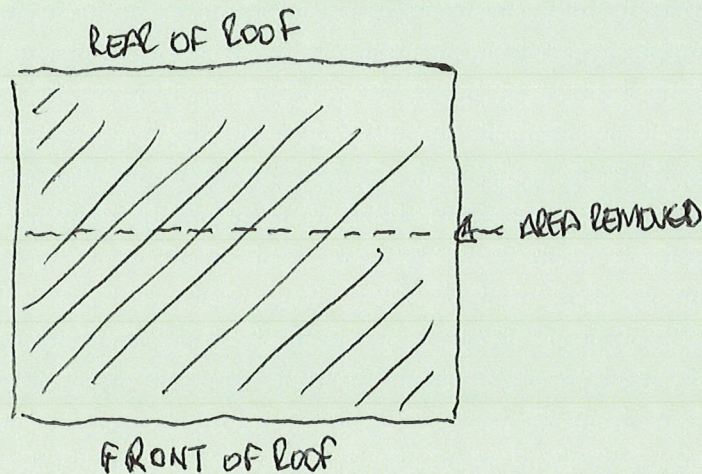 REAR OF ROOF
AREA REMOVED
FRONT OF ROOF